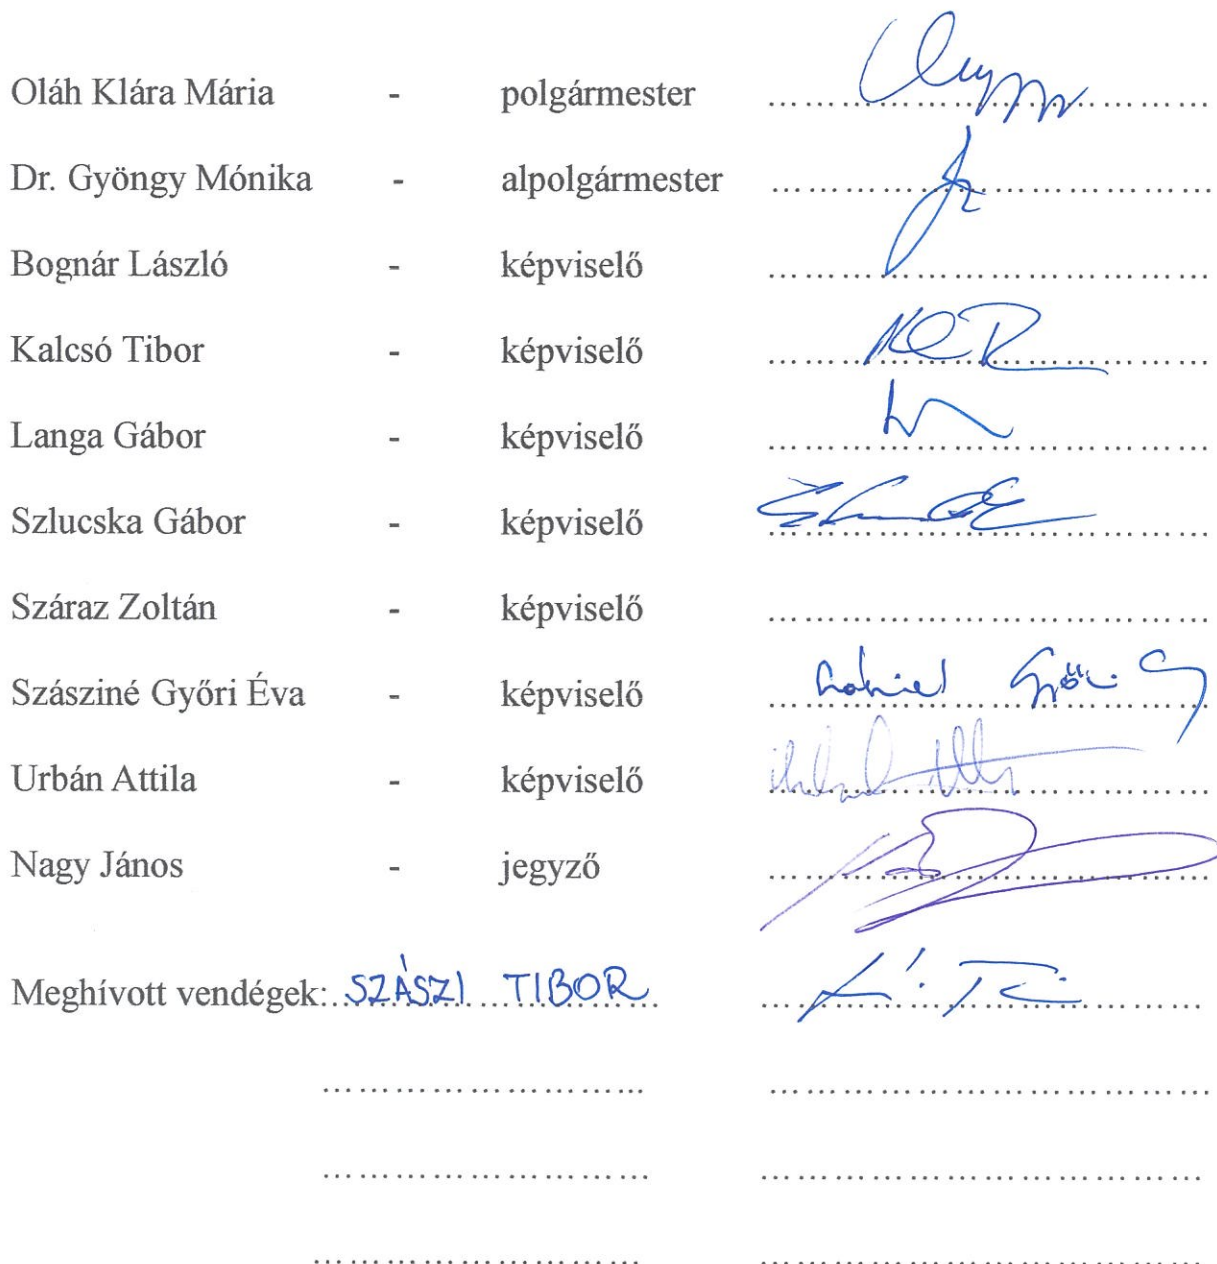 Oláh Klára Mária - polgármester
Dr. Gyöngy Mónika - alpolgármester
Bognár László - képviselő
Kalcsó Tibor - képviselő
Langa Gábor - képviselő
Szlucska Gábor - képviselő
Száraz Zoltán - képviselő
Szásziné Győri Éva - képviselő Győri
Urbán Attila - képviselő
Nagy János - jegyző
Meghívott vendégek: SZÁSZI TIBOR